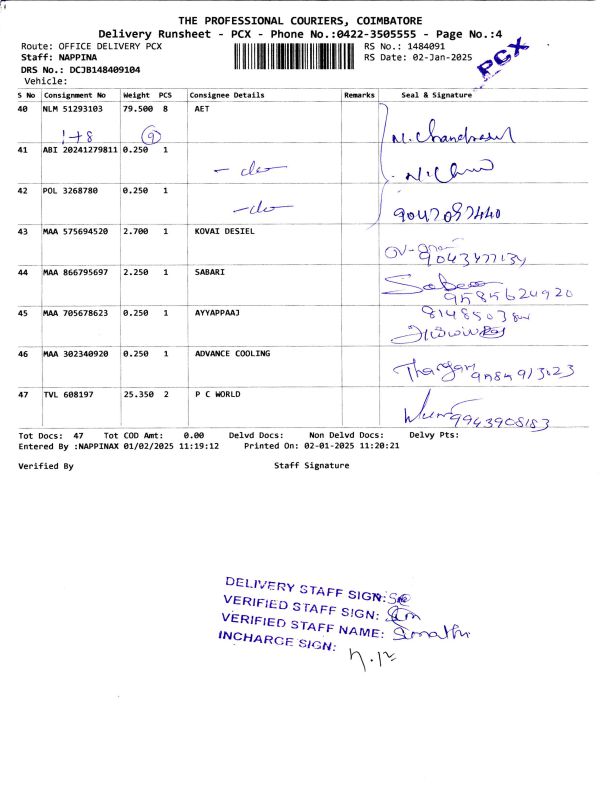 THE PROFESSIONAL COURIERS, COIMBATORE
Delivery Runsheet - PCX - Phone No.:0422-3505555 - Page No.:4
Route: OFFICE DELIVERY PCX
RS No.: 1484091
Staff: NAPPINA
RS Date: 02-Jan-2025
DRS No.: DCJB148409104
Vehicle:
PCX
S No Consignment No Weight PCS Consignee Details Remarks Seal & Signature
40 NLM 51293103 79.500 8 AET
1+8 9
N. Chandrasel
41 ABI 20241279811 0.250 1
- do
42 POL 3268780 0.250 1
- do
9047087440
43 MAA 575694520 2.700 1 KOVAI DESIEL
9043477134
44 MAA 866795697 2.250 1 SABARI
9585624920
45 MAA 705678623 0.250 1 AYYAPPAAJ
46 MAA 302340920 0.250 1 ADVANCE COOLING
47 TVL 608197 25.350 2 P C WORLD
9943908183
Tot Docs: 47 Tot COD Amt: 0.00 Delvd Docs: Non Delvd Docs: Delvy Pts:
Entered By :NAPPINAX 01/02/2025 11:19:12 Printed On: 02-01-2025 11:20:21
Verified By Staff Signature
DELIVERY STAFF SIGN:
VERIFIED STAFF SIGN:
VERIFIED STAFF NAME:
INCHARGE SIGN: